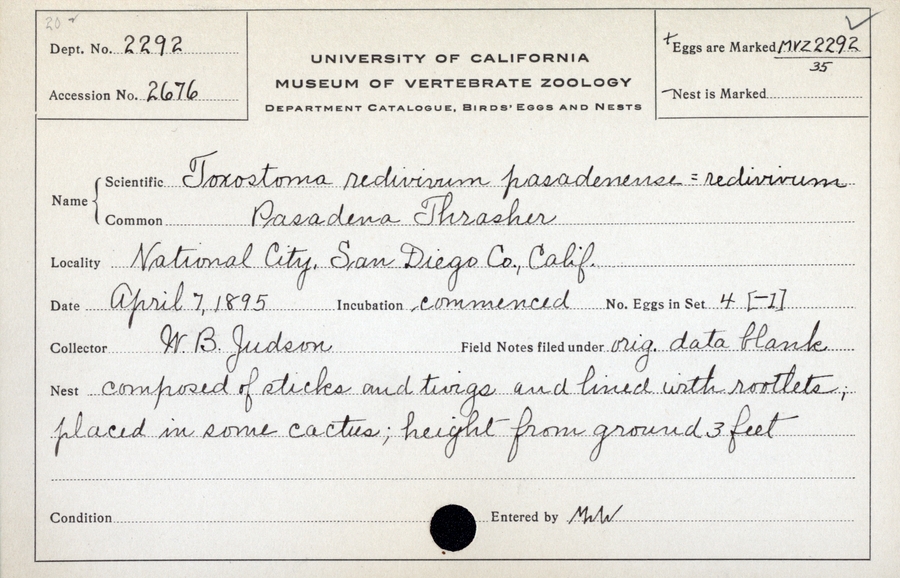 20
Dept. No. 2292
Accession No. 2676
UNIVERSITY OF CALIFORNIA
MUSEUM OF VERTEBRATE ZOOLOGY
DEPARTMENT CATALOGUE, BIRDS' EGGS AND NESTS
+Eggs are Marked MVZ 2292
35
-Nest is Marked
Name
Scientific Toxostoma redivivum pasadenense = redivivum
Common Pasadena Thrasher
Locality National City, San Diego Co., Calif.
Date April 7, 1895 Incubation commenced No. Eggs in Set 4 [-1]
Collector W. B. Judson Field Notes filed under orig. data blank
Nest composed of sticks and twigs and lined with rootlets;
placed in some cactus; height from ground 3 feet
Condition Entered by